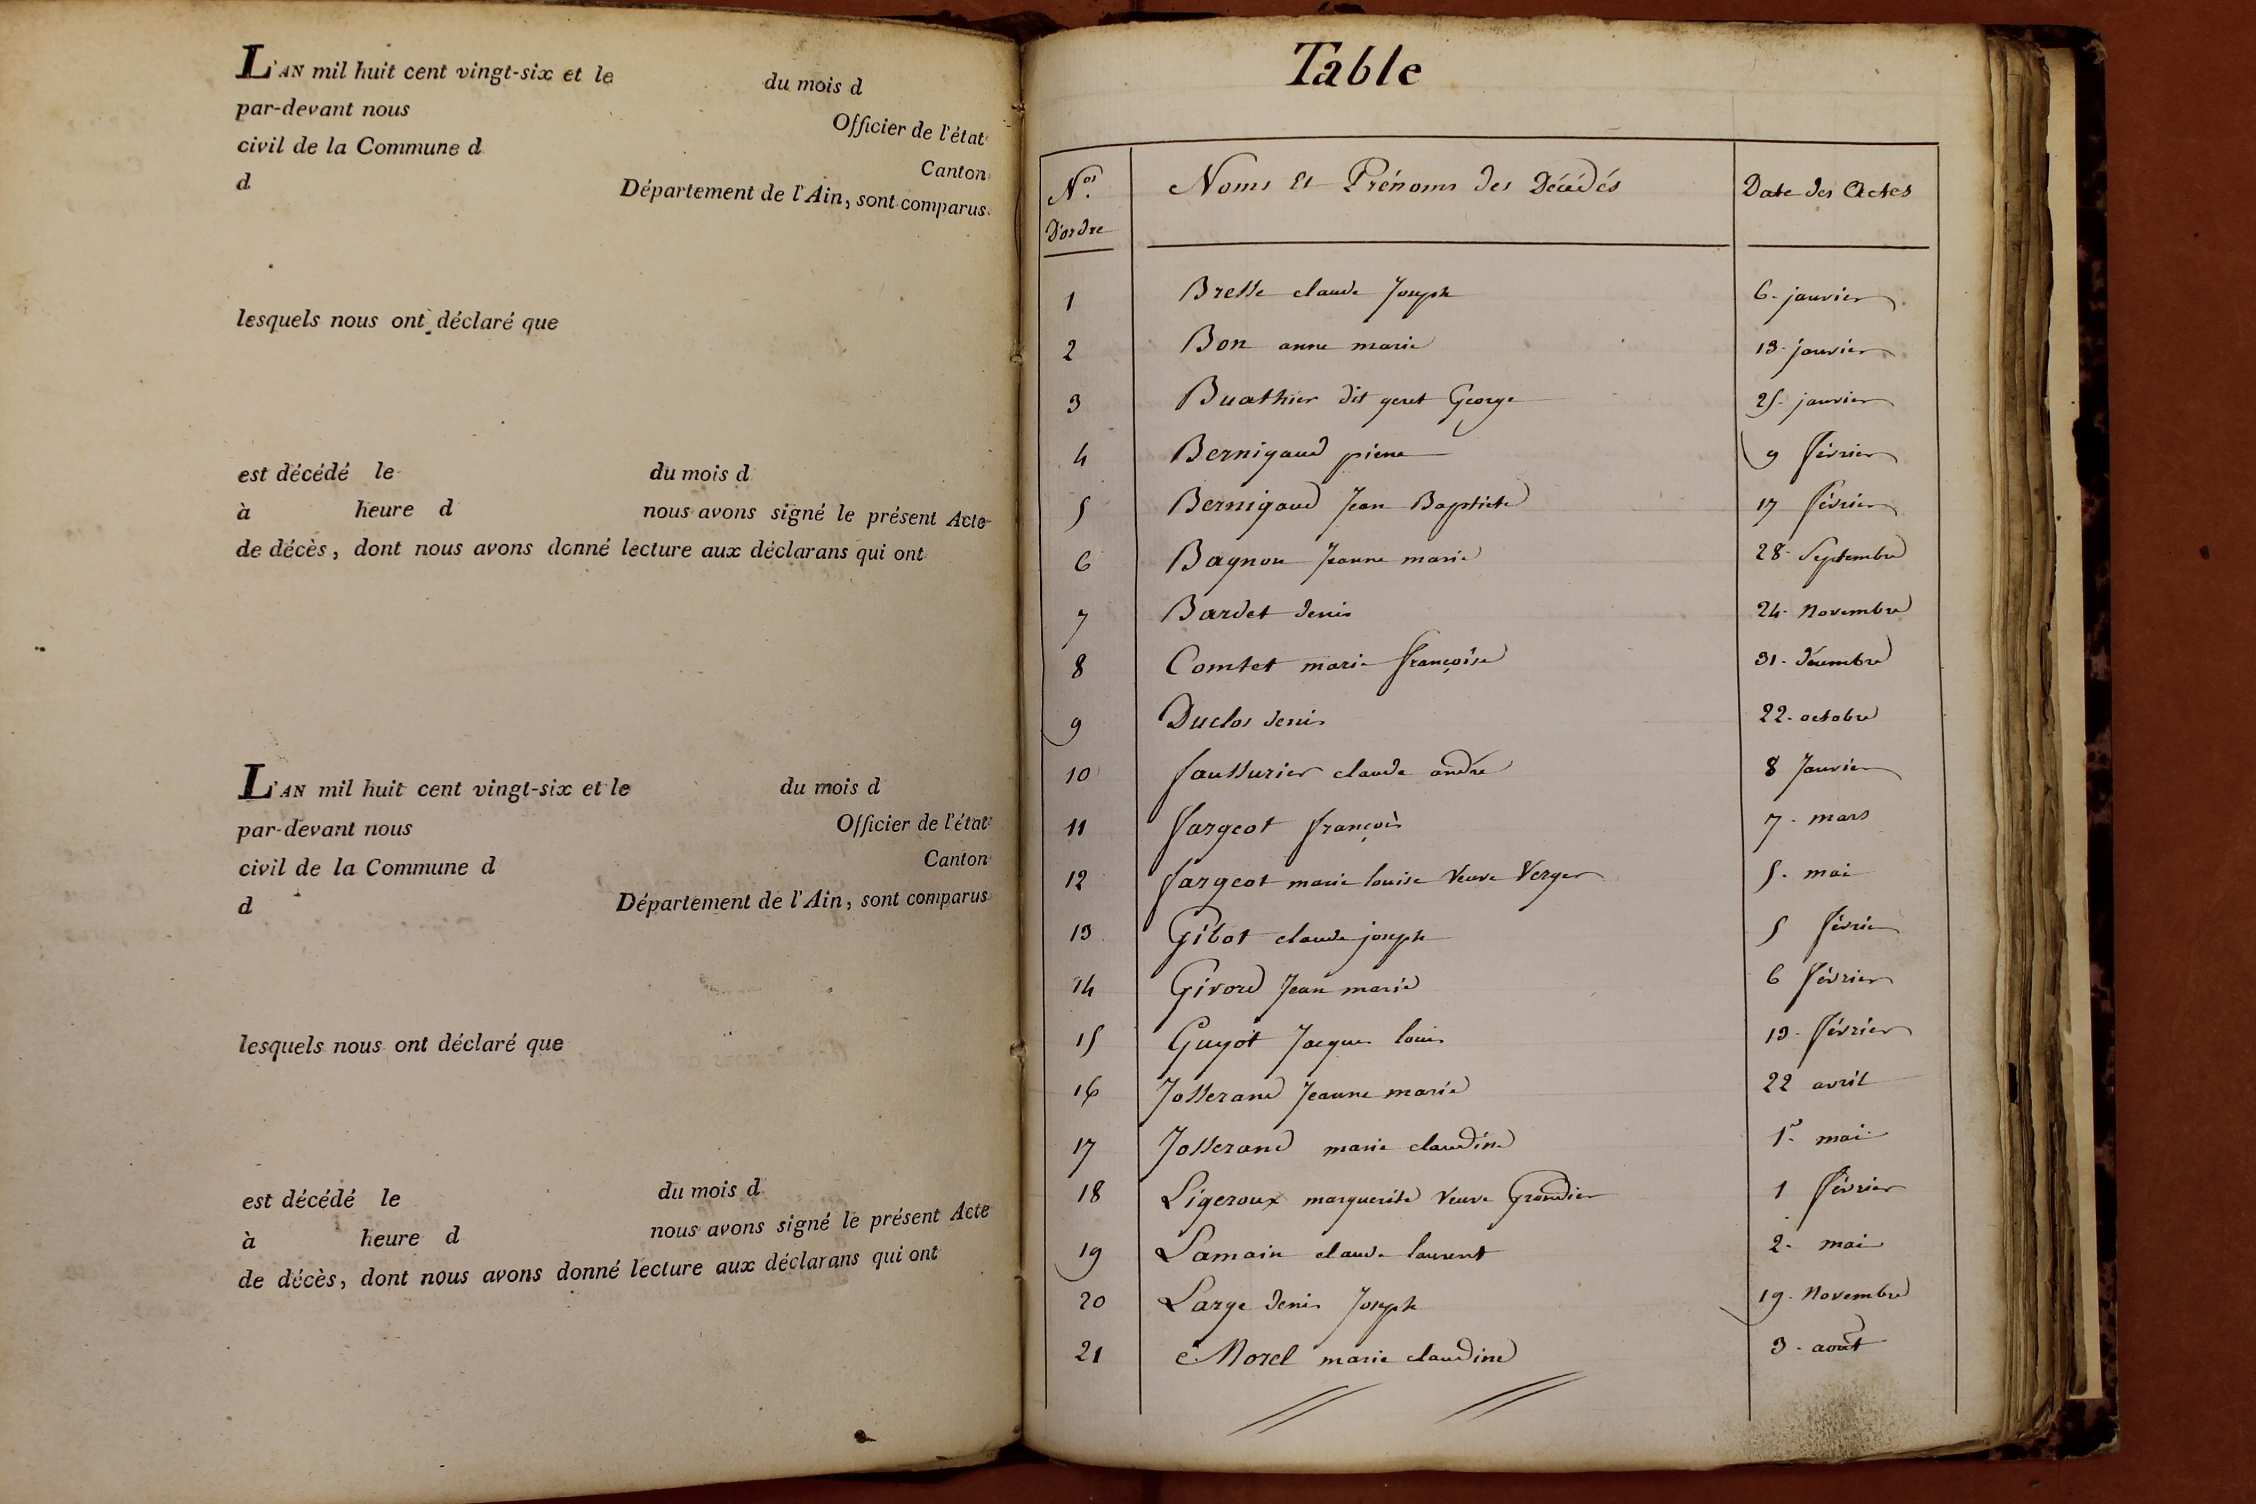 L'AN mil huit cent vingt-six et le du mois d
par-devant nous Officier de l'état
civil de la Commune d Canton
d Département de l'Ain, sont comparus
lesquels nous ont déclaré que
est décédé le du mois d
à heure d nous avons signé le présent Acte
de décès, dont nous avons donné lecture aux déclarans qui ont
L'AN mil huit cent vingt-six et le du mois d
par-devant nous Officier de l'état
civil de la Commune d Canton
d Département de l'Ain, sont comparus
lesquels nous ont déclaré que
est décédé le du mois d
à heure d nous avons signé le présent Acte
de décès, dont nous avons donné lecture aux déclarans qui ont
Table
Nos. D'ordre Noms Et Prénoms des Décédés Date des Actes
1 Bresse claude Joseph 6. janvier
2 Bon anne marie 13. janvier
3 Buathier dit geret George 25. janvier
4 Bernigaud pierre 9 février
5 Bernigaud Jean Baptiste 17 février
6 Bagnon Jeanne marie 28. Septembre
7 Bardet denis 24. Novembre
8 Comtet marie françoise 31. décembre
9 Duclos denis 22. octobre
10 faussurier claude andré 8 Janvier
11 fargeot françois 7. mars
12 fargeot marie louise Veuve Verger 5. mai
13 Gibot claude joseph 5 février
14 Givord Jean marie 6 février
15 Guyot Jacques louis 13. février
16 Josserand Jeanne marie 22 avril
17 Josserand marie claudine 1r. mai
18 Ligeroux marguerite Veuve Grandier 1 février
19 Lamain claude laurent 2. mai
20 Large denis Joseph 19. Novembre
21 Morel marie claudine 3. août